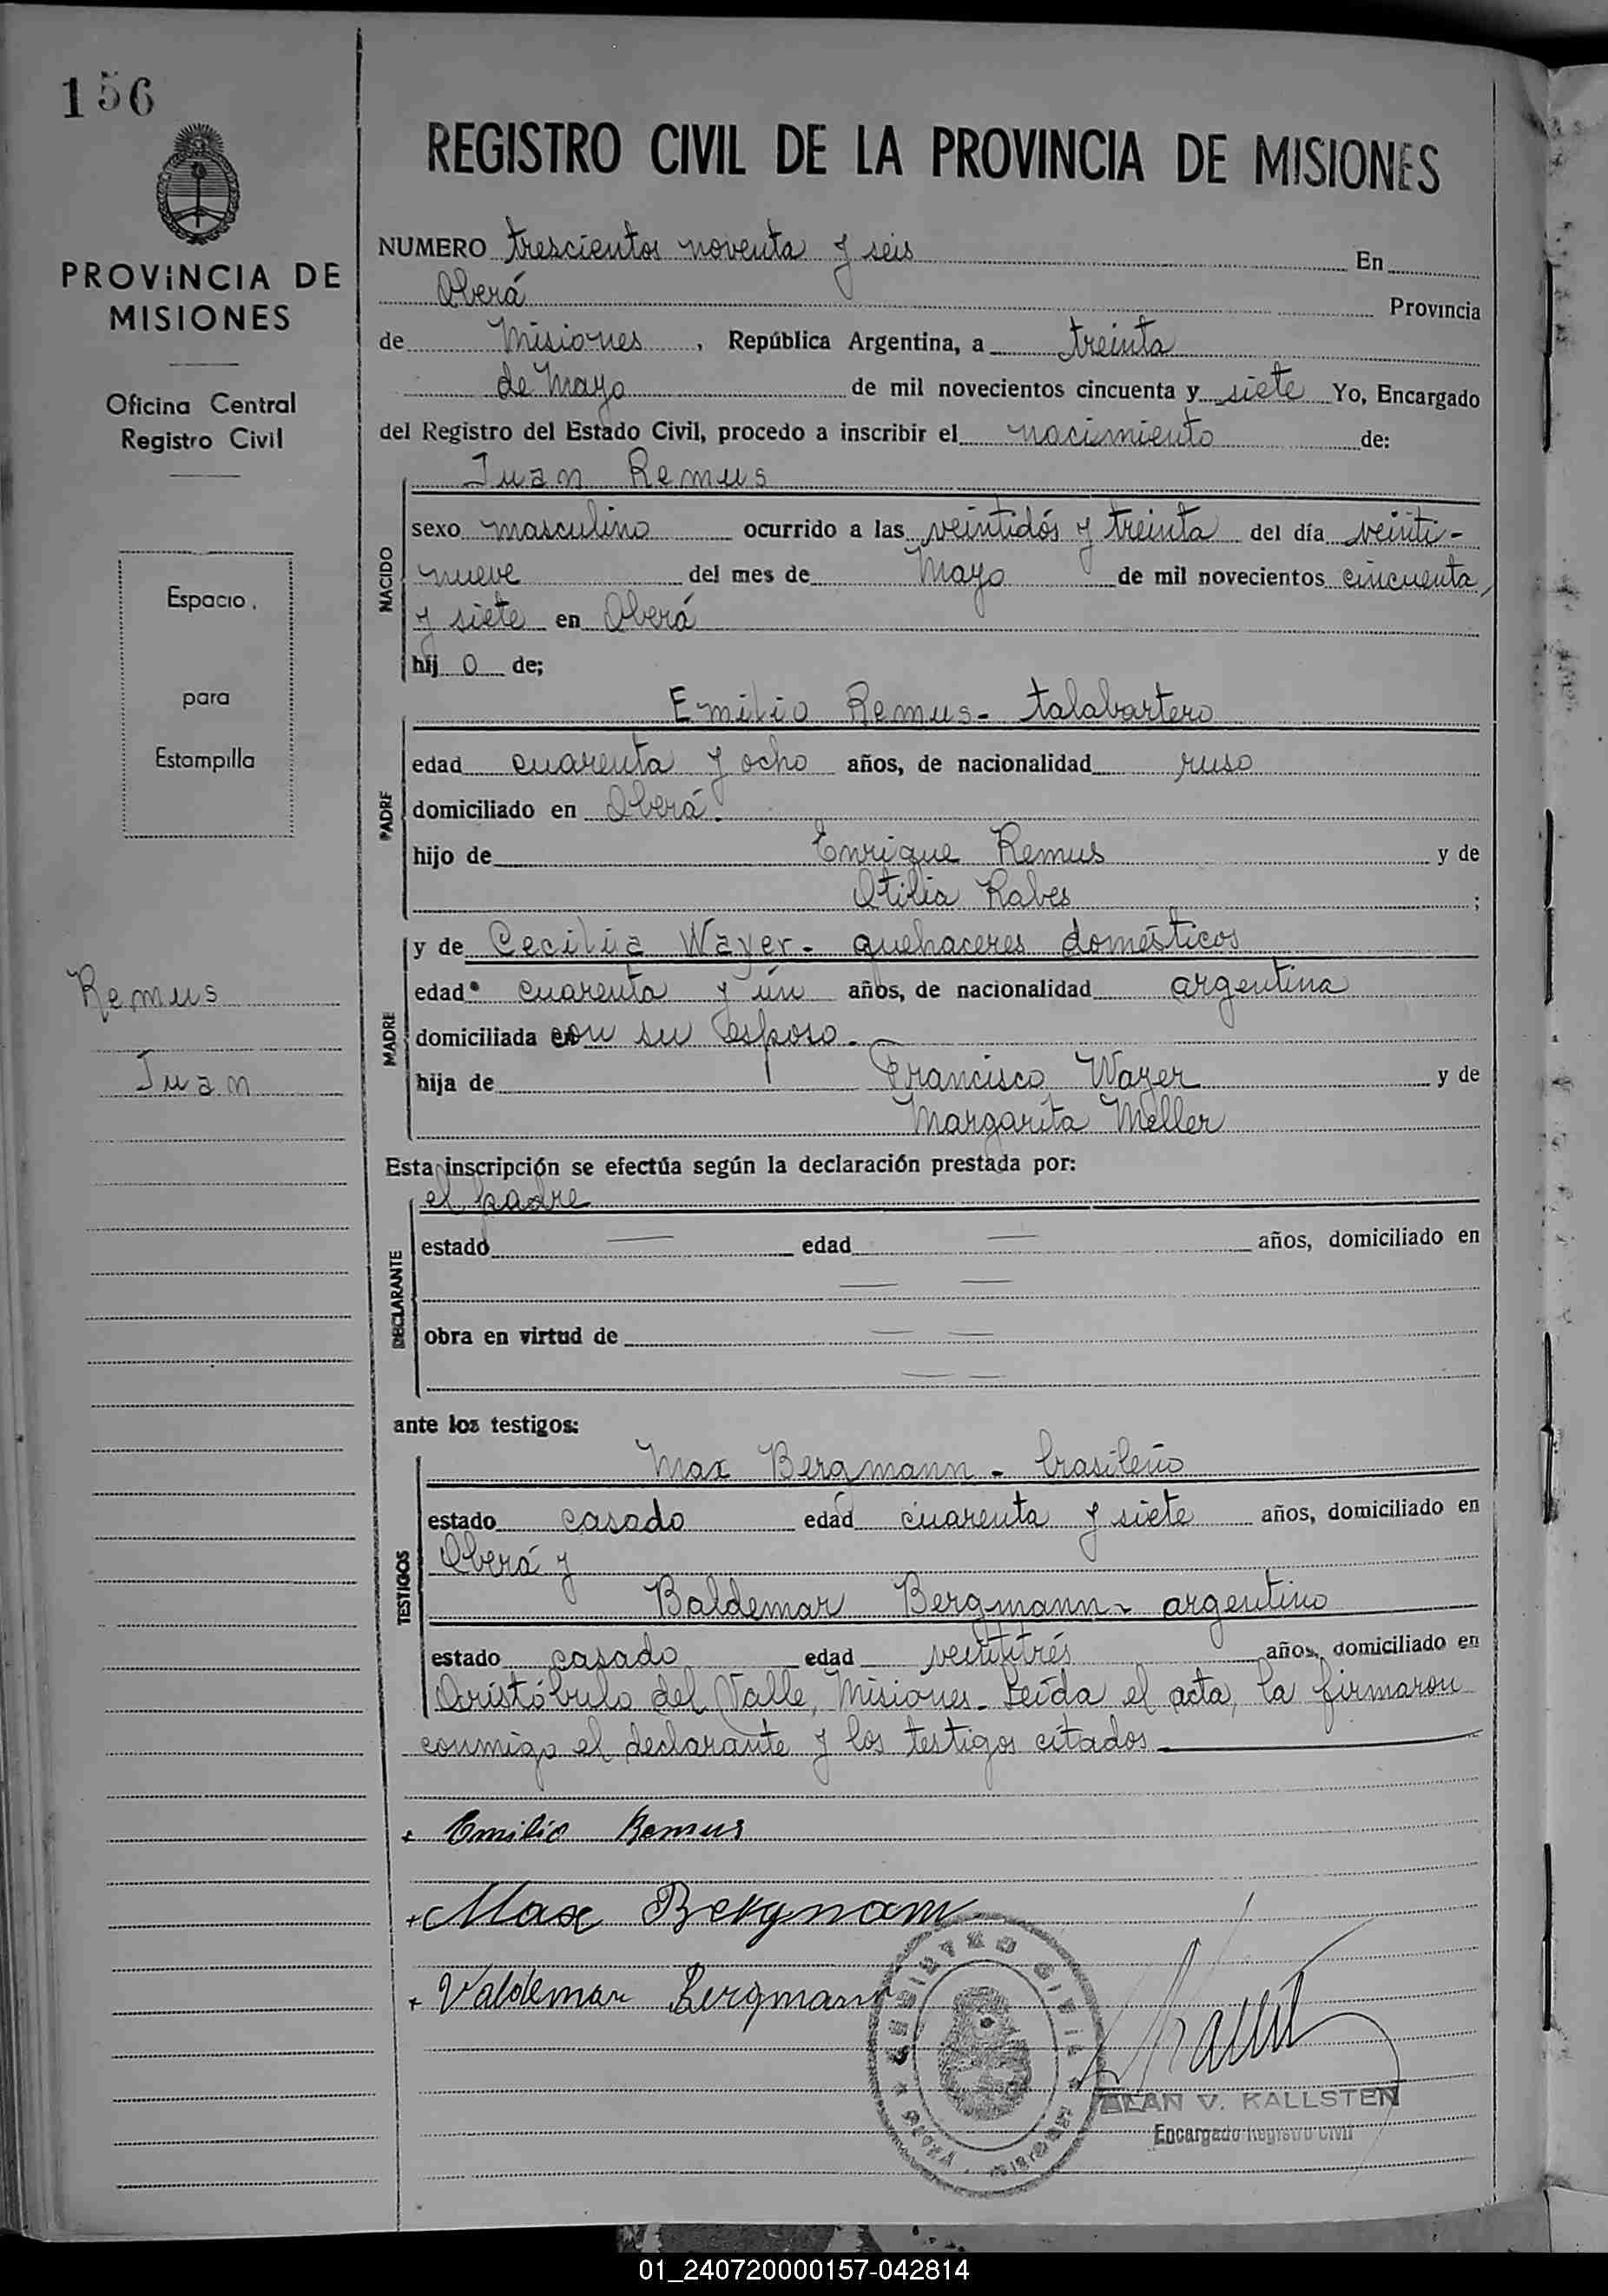 156
REGISTRO CIVIL DE LA PROVINCIA DE MISIONES
PROVINCIA DE
MISIONES
Oficina Central
Registro Civil
Espacio
para
Estampilla
Remus
Juan
NUMERO trescientos noventa y seis En
Oberá Provincia
de Misiones, República Argentina, a treinta
de Mayo de mil novecientos cincuenta y siete Yo, Encargado
del Registro del Estado Civil, procedo a inscribir el nacimiento de:
NACIDO
Juan Remus
sexo masculino ocurrido a las veintidós y treinta del día veinti-
nueve del mes de Mayo de mil novecientos cincuenta
y siete en Oberá
hij o de;
PADRE
Emilio Remus - talabartero
edad cuarenta y ocho años, de nacionalidad ruso
domiciliado en Oberá.
hijo de Enrique Remus y de
Otilia Rabes ;
MADRE
y de Cecilia Wayer - quehaceres domésticos
edad cuarenta y un años, de nacionalidad argentina
domiciliada con su esposo.
hija de Francisco Wayer y de
Margarita Meller
Esta inscripción se efectúa según la declaración prestada por:
DECLARANTE
el padre
estado — edad — años, domiciliado en
— —
obra en virtud de — —
— —
ante los testigos:
TESTIGOS
Max Bergmann - brasileño
estado casado edad cuarenta y siete años, domiciliado en
Oberá y
Baldemar Bergmann - argentino
estado casado edad veintitrés años, domiciliado en
Aristóbulo del Valle, Misiones. Leída el acta, la firmaron
conmigo el declarante y los testigos citados.
+ Emilio Remus
+ Max Bergmann
+ Valdemar Bergmann
REGISTRO CIVIL
OBERA MISIONES
ALAN V. KALLSTEN
Encargado Registro Civil
01_240720000157-042814